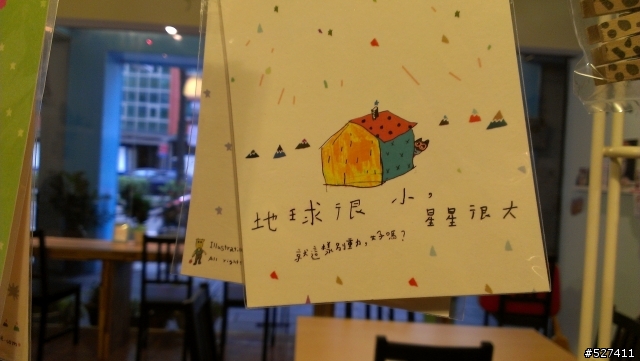 地球很小，
星星很大
就這樣別動，好嗎？
Illustrat
All right
#527411